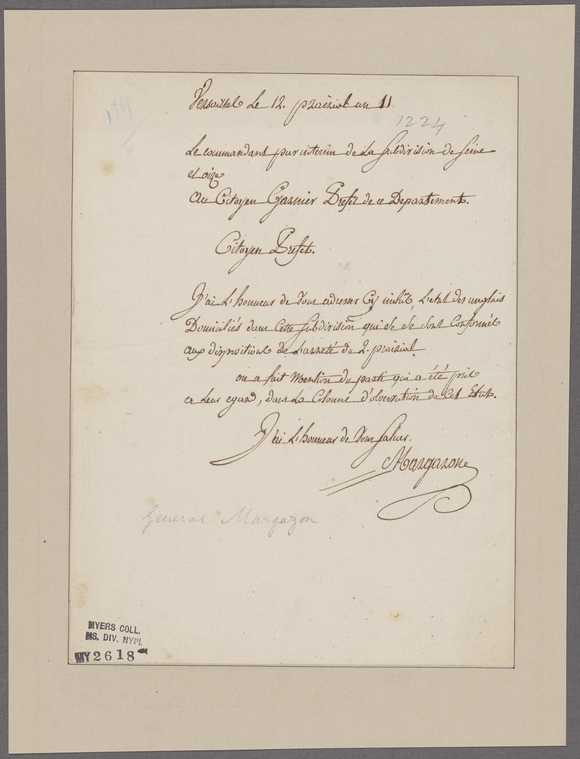 Versailles Le 12 prairial an 11.
1224
Le commandant par interim de La Subdivision de Seine
et oize
au Citoyen Garnier Préfet de ce Département.
Citoyen Préfet.
J'ai L'honneur de Vous adresser Cy inclus, L'état des anglais
Domiciliés dans Cette Subdivision qui Se Sont Conformés
aux dispositions de L'arreté du 2. prairial.
on a fait Mention du parti qui a été pris
a Leur egard, dans La Colonne d'observation de Cet Etat.
J'ai L'honneur de Vous Saluer.
Margaron
General Margazon
MYERS COLL.
MS. DIV. NYPL
MY 2618